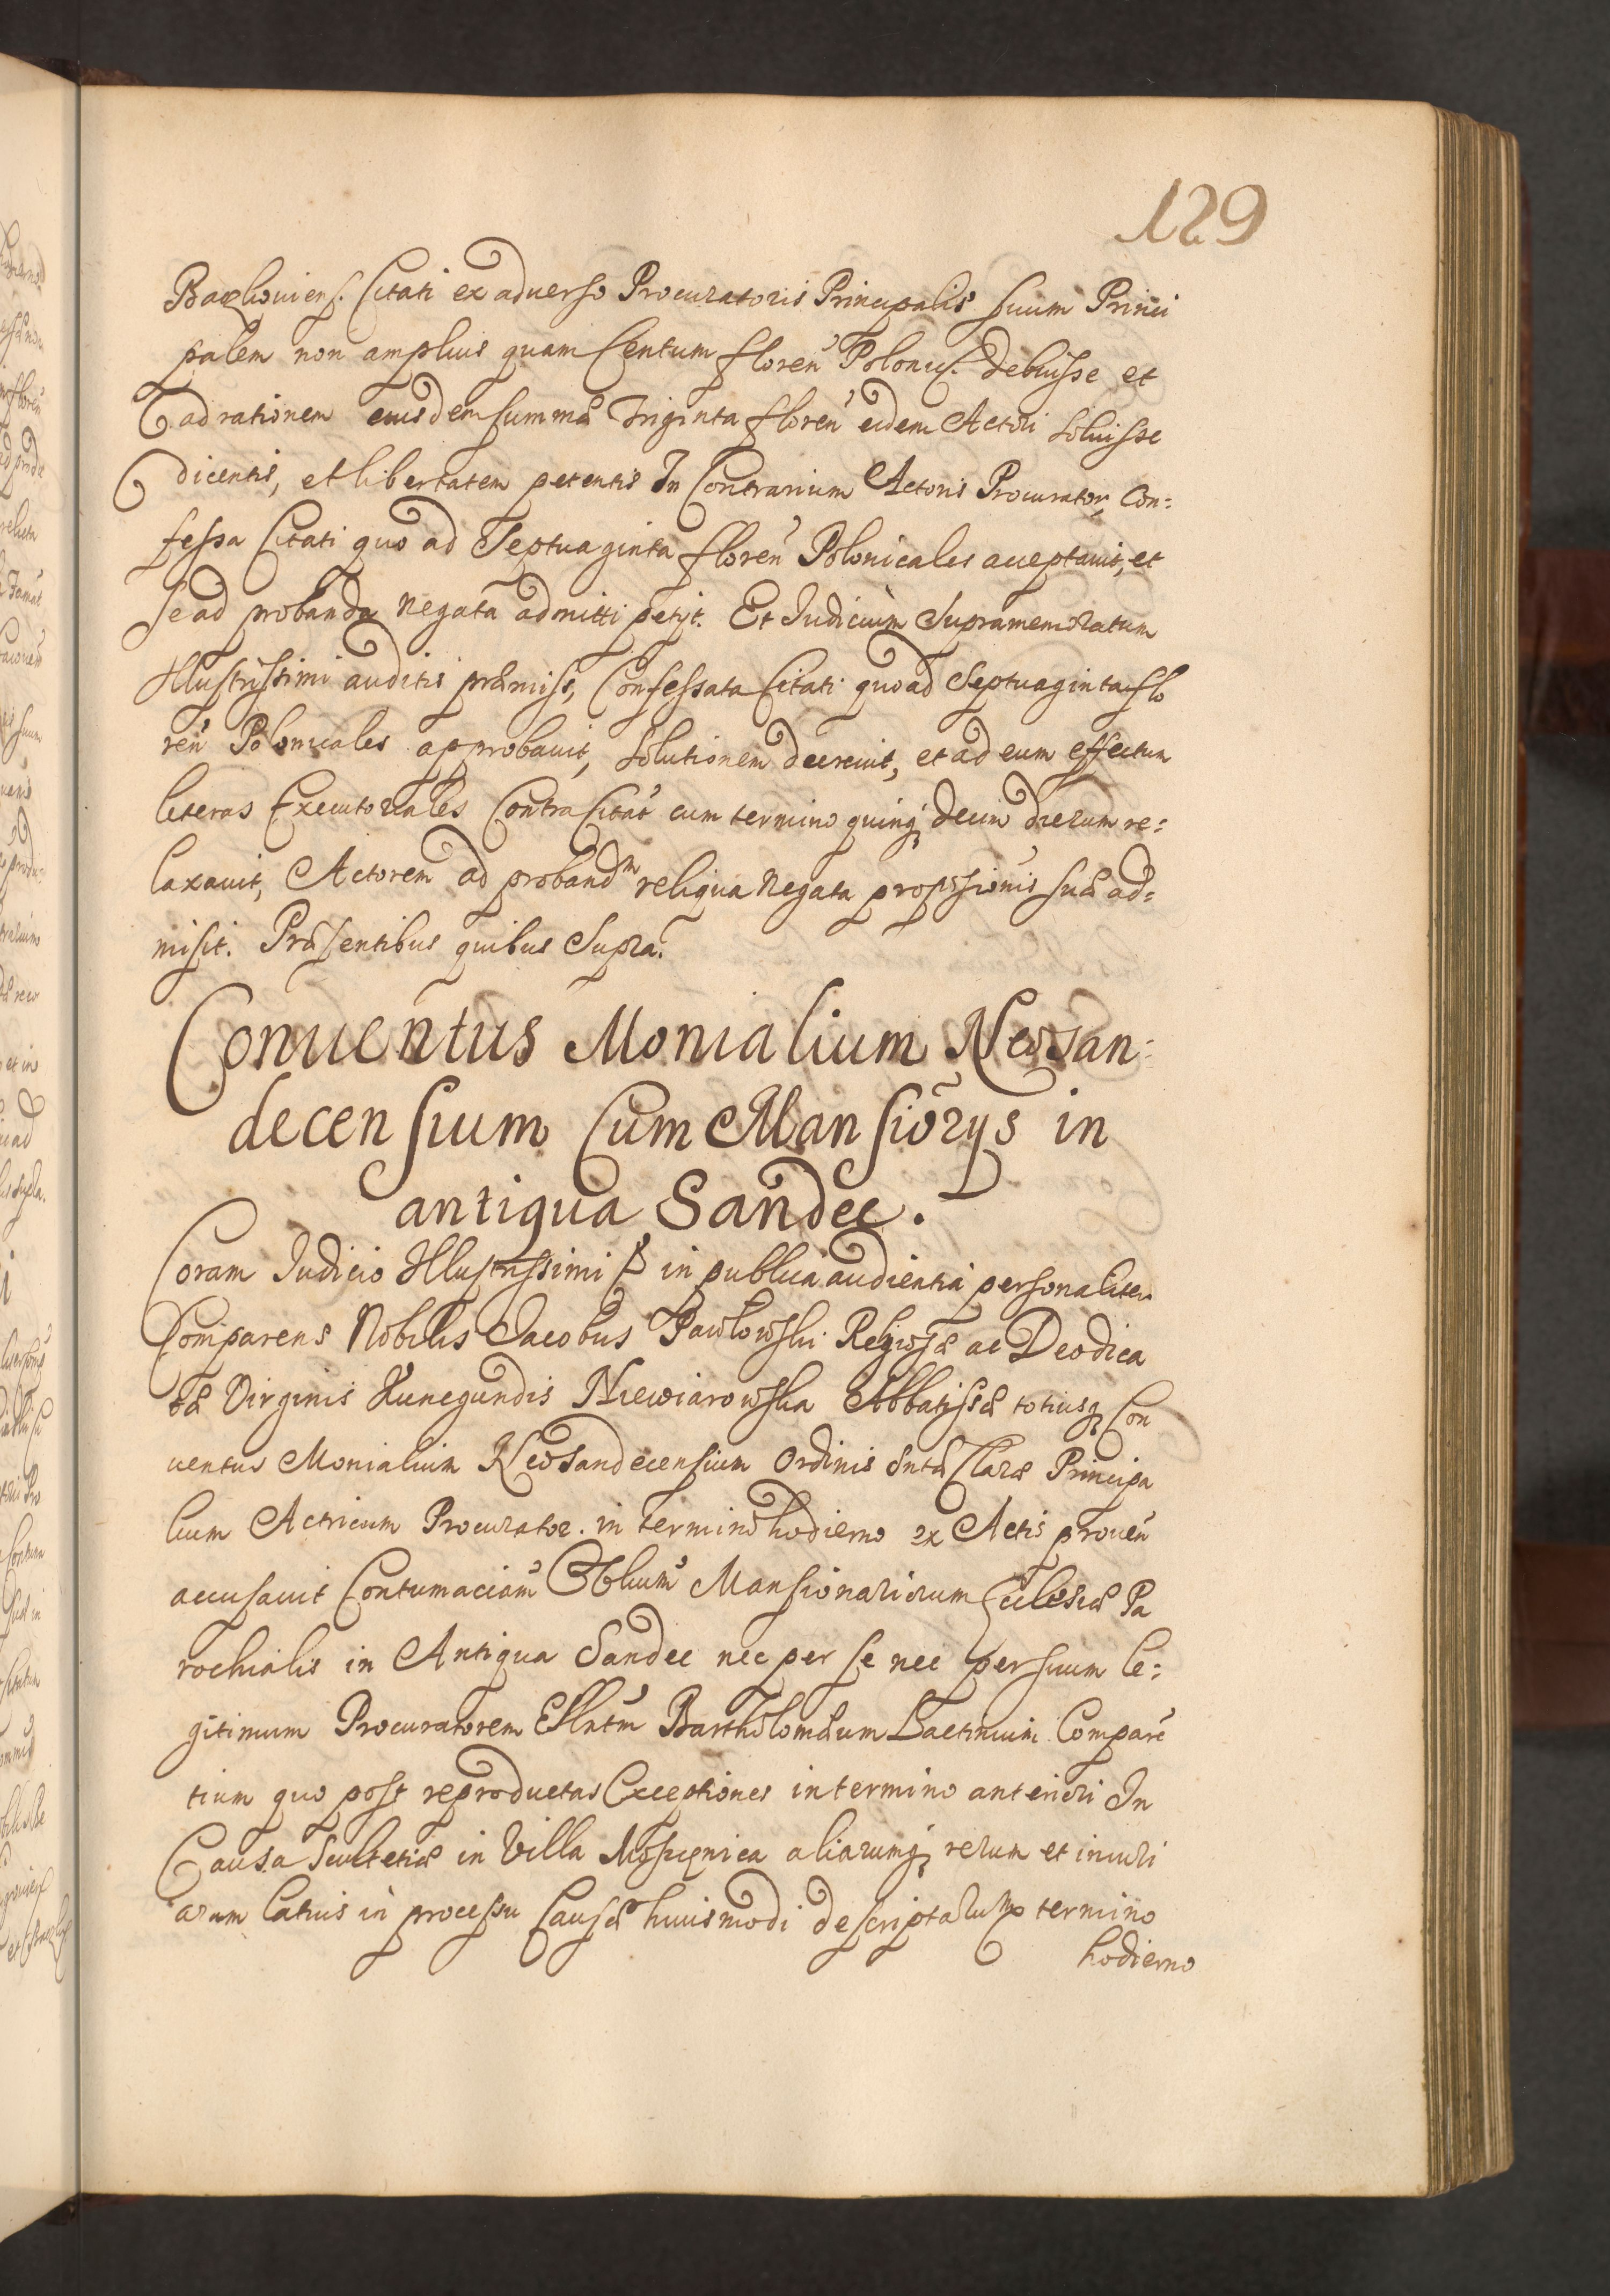 129
Citati ex aduerso Procuratoris Principalis suum Princi
palem non amplius quam Centum floren Polonic. debuisse et
ad rationem eiusdem summæ Triginta floren eidem Actori soluisse
dicentis, et libertatem petentis In Contrarium Actoris Procurator, Con:
fessa Citati quo ad Septuaginta floren Polonicales acceptauit, et
se ad probanda negata admitti petijt. Et Iudicium Supramemoratum
Illustrissimi auditis præmiss, Confessata Citati quo ad Septuaginta flo
ren Polonicales approbauit, solutionem decreuit, et ad eum effectum
literas Executoriales Contra Citat cum termino quinq decim dierum re:
laxauit, Actorem ad proband reliqua negata suæ ad:
misit. Præsentibus quibus Supra.
Conuentus Monialium Neosan:
decensium Cum Mansiorys in
antiqua Sandec.
Coram Iudicio Illustrissimi in publica audientia personaliter
Comparens Nobilis Jacobus Pawłowski Religiosæ ac Deodica
tæ Virginis Kunegundis Niewiarowska Abbatissæ totiusq Con
uentus Monialium Neosandecensium Ordinis Sntæ Claræ Principa
lium Actricum Procurator. in termino hodierno ex Actis prouen
accusauit Contumaciam Mansionariorum Ecclesiæ Pa
rochialis in Antiqua Sandec nec per se nec per suum le:
gitimum Procuratorem Bartholomæum Comparen
tium quo post reproductas Exceptiones in termino anteriori In
Causa Scultetiæ in Villa aliarumq rerum et iniuri
arum latius in processu Causæ huiusmodi descriptarum termino
hodierno